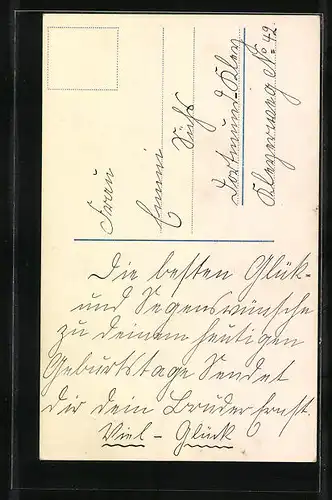 Frau
Emmi
Fuchs
Dortmund-Kley
Kleyerweg No 42.
Die besten Glük-
und Segenswünsche
zu deinem heutigen
Geburtstage Sendet
dir dein Bruder Ernst.
Viel - Glück